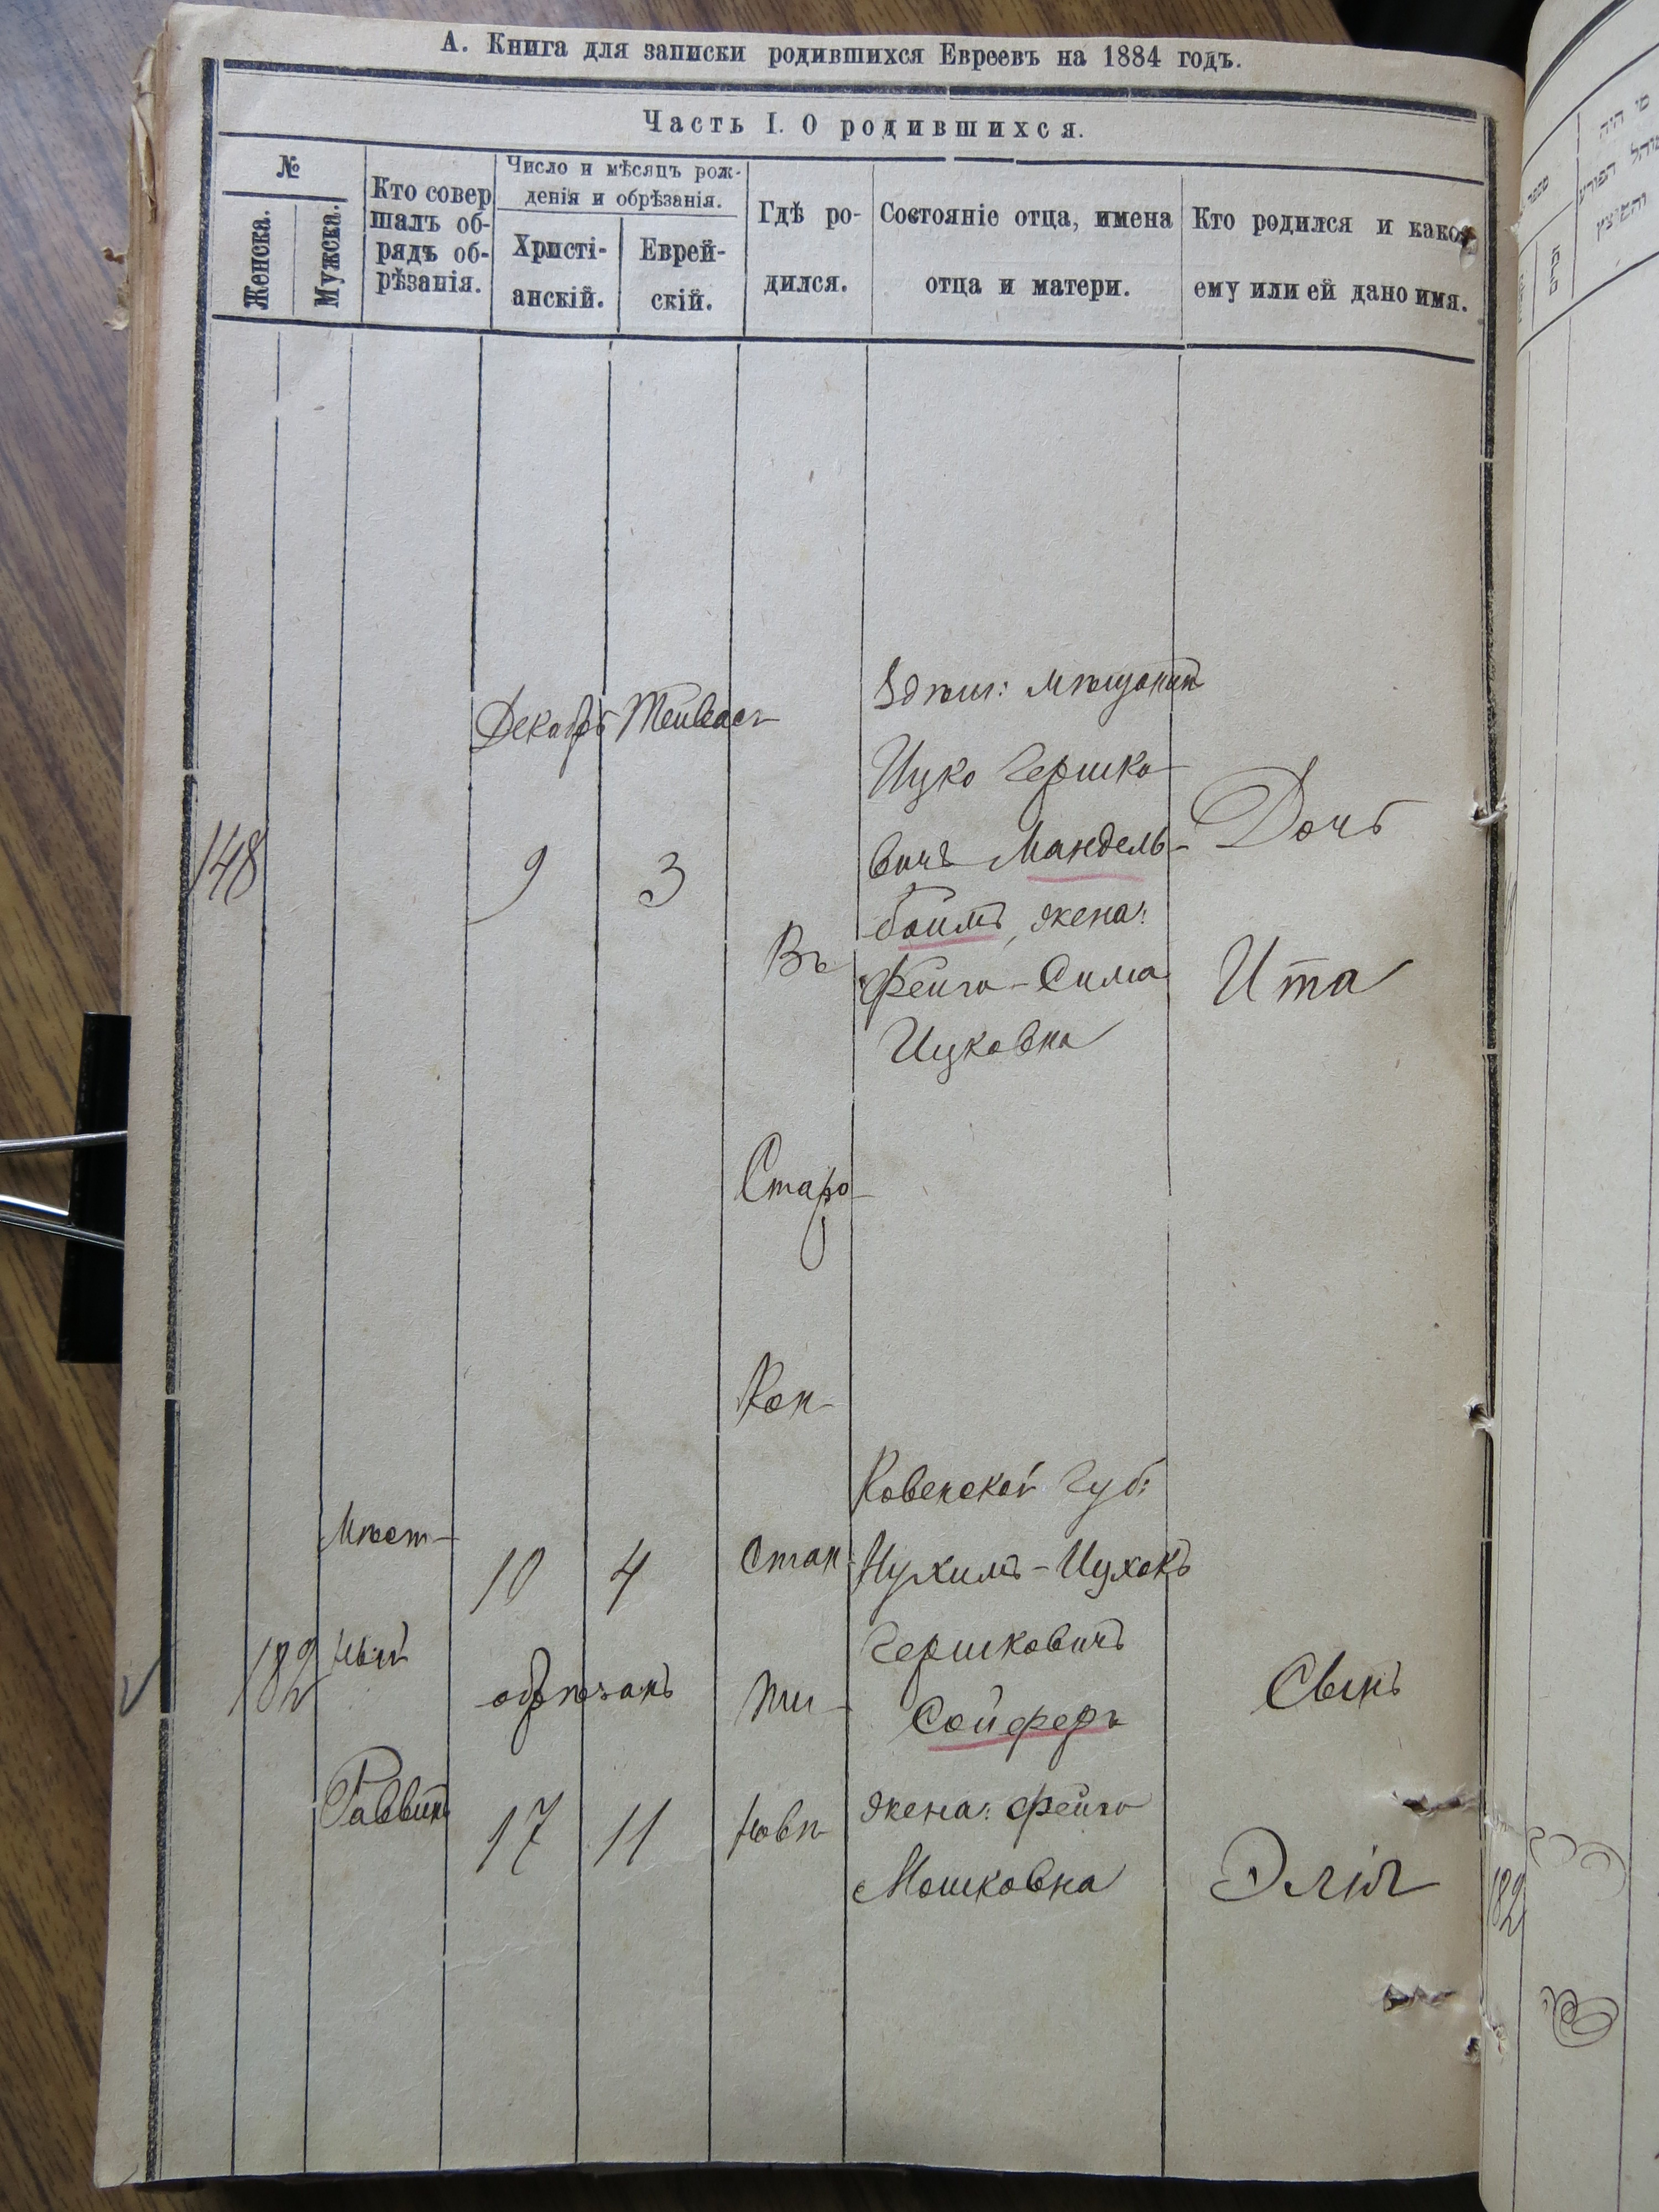 А. Книга для записки родившихся Евреевъ на 1884 годъ.
Часть I. О родившихся.
№
Женска.
Мужска.
Кто совер
шалъ об-
рядъ об-
рѣзанія.
Число и мѣсяцъ рож-
денія и обрѣзанія.
Христі-
анскій.
Еврей-
скій.
Гдѣ ро-
дился.
Состояніе отца, имена
отца и матери.
Кто родился и какое
ему или ей дано имя.
148
Декабрь
9
Тейвесъ
3
Здѣш: мѣщанинъ
Ицко Гершко-
вичъ Мандель-
боимъ, жена:
Фейга-Сима
Ицковна
Дочь
Ита
Въ
Старо-
Кон-
стан-
ти-
новѣ
182
Мѣст-
ный
Раввинъ
10
4
обрѣзанъ
17
11
Ковенской губ:
Нухимъ-Ицхокъ
Гершковичъ
Сойферъ
жена: Фейга
Мошковна
Сынъ
Элія
182